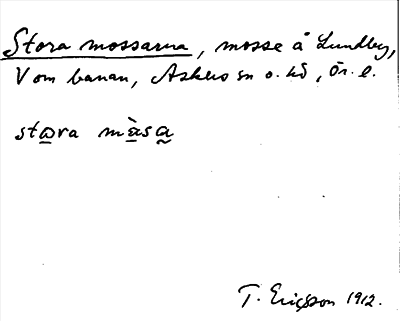 Stora mossarna, mosse å Lundby,
V om banan, Askers sn o. hd, Ör. l.
stora måsa
T. Ericsson 1912.